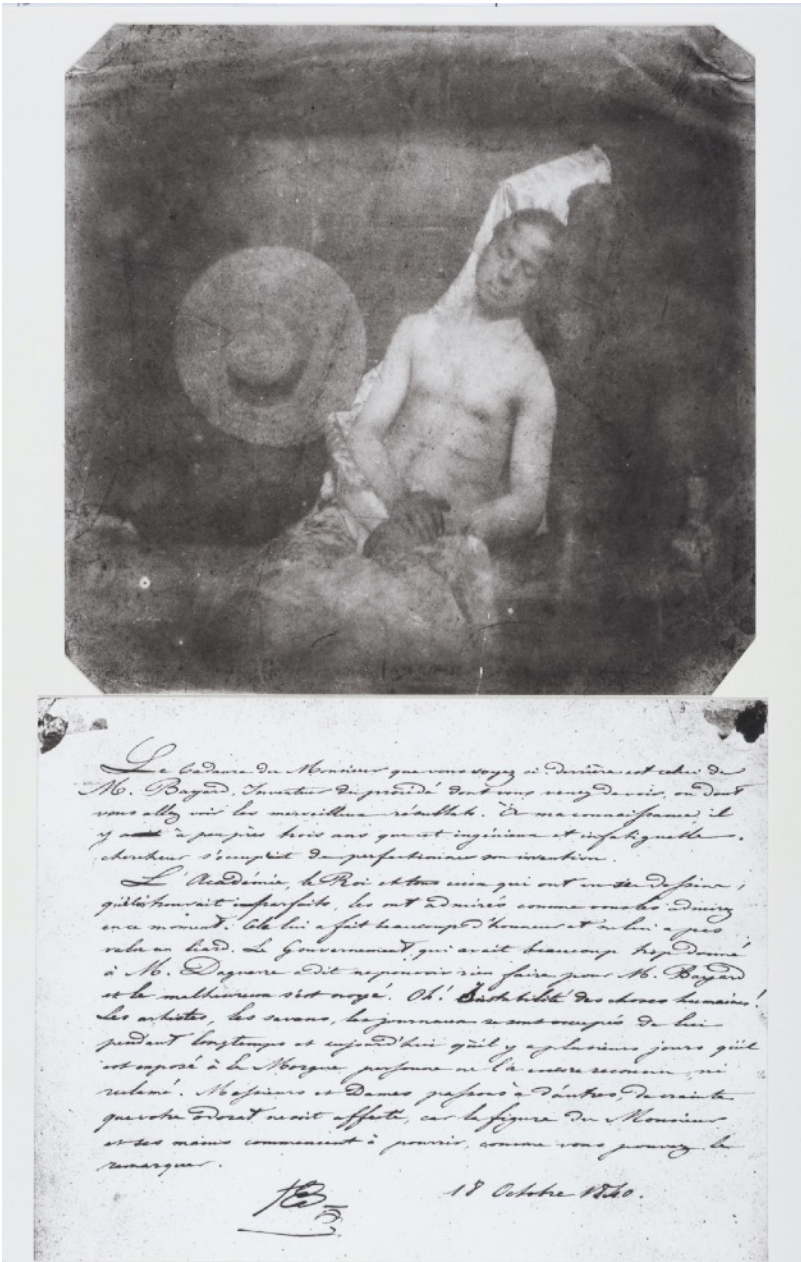 Le Cadavre du Monsieur que vous voyez ci-derrière est celui de
M. Bayard, Inventeur du procédé dont vous venez de voir, ou dont
vous allez voir les merveilleux résultats. À ma connaissance, il
y a à peu près trois ans que cet ingénieux et infatigable
chercheur s'occupait de perfectionner son invention.
L'Académie, le Roi et tous ceux qui ont vu ses dessins,
que lui trouvait imparfaits, les ont admirés comme vous les admirez
en ce moment. Cela lui a fait beaucoup d'honneur et ne lui a pas
valu un liard. Le Gouvernement, qui avait beaucoup trop donné
à M. Daguerre a dit ne pouvoir rien faire pour M. Bayard
et le malheureux s'est noyé. Oh! Instabilité des choses humaines!
Les artistes, les savans, les journaux se sont occupés de lui
pendant longtemps et aujourd'hui qu'il y a plusieurs jours qu'il
est exposé à la Morgue personne ne l'a encore reconnu, ni
réclamé. Messieurs et Dames, passons à d'autres, de crainte
que votre odorat ne soit affecté, car la figure du Monsieur
et ses mains commencent à pourrir, comme vous pouvez le
remarquer.
HB
18 Octobre 1840.